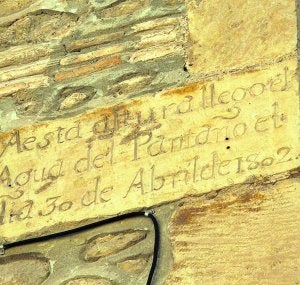 A esta altura llego el
Agua del Pantano el
dia 30 de Abril de 1802.